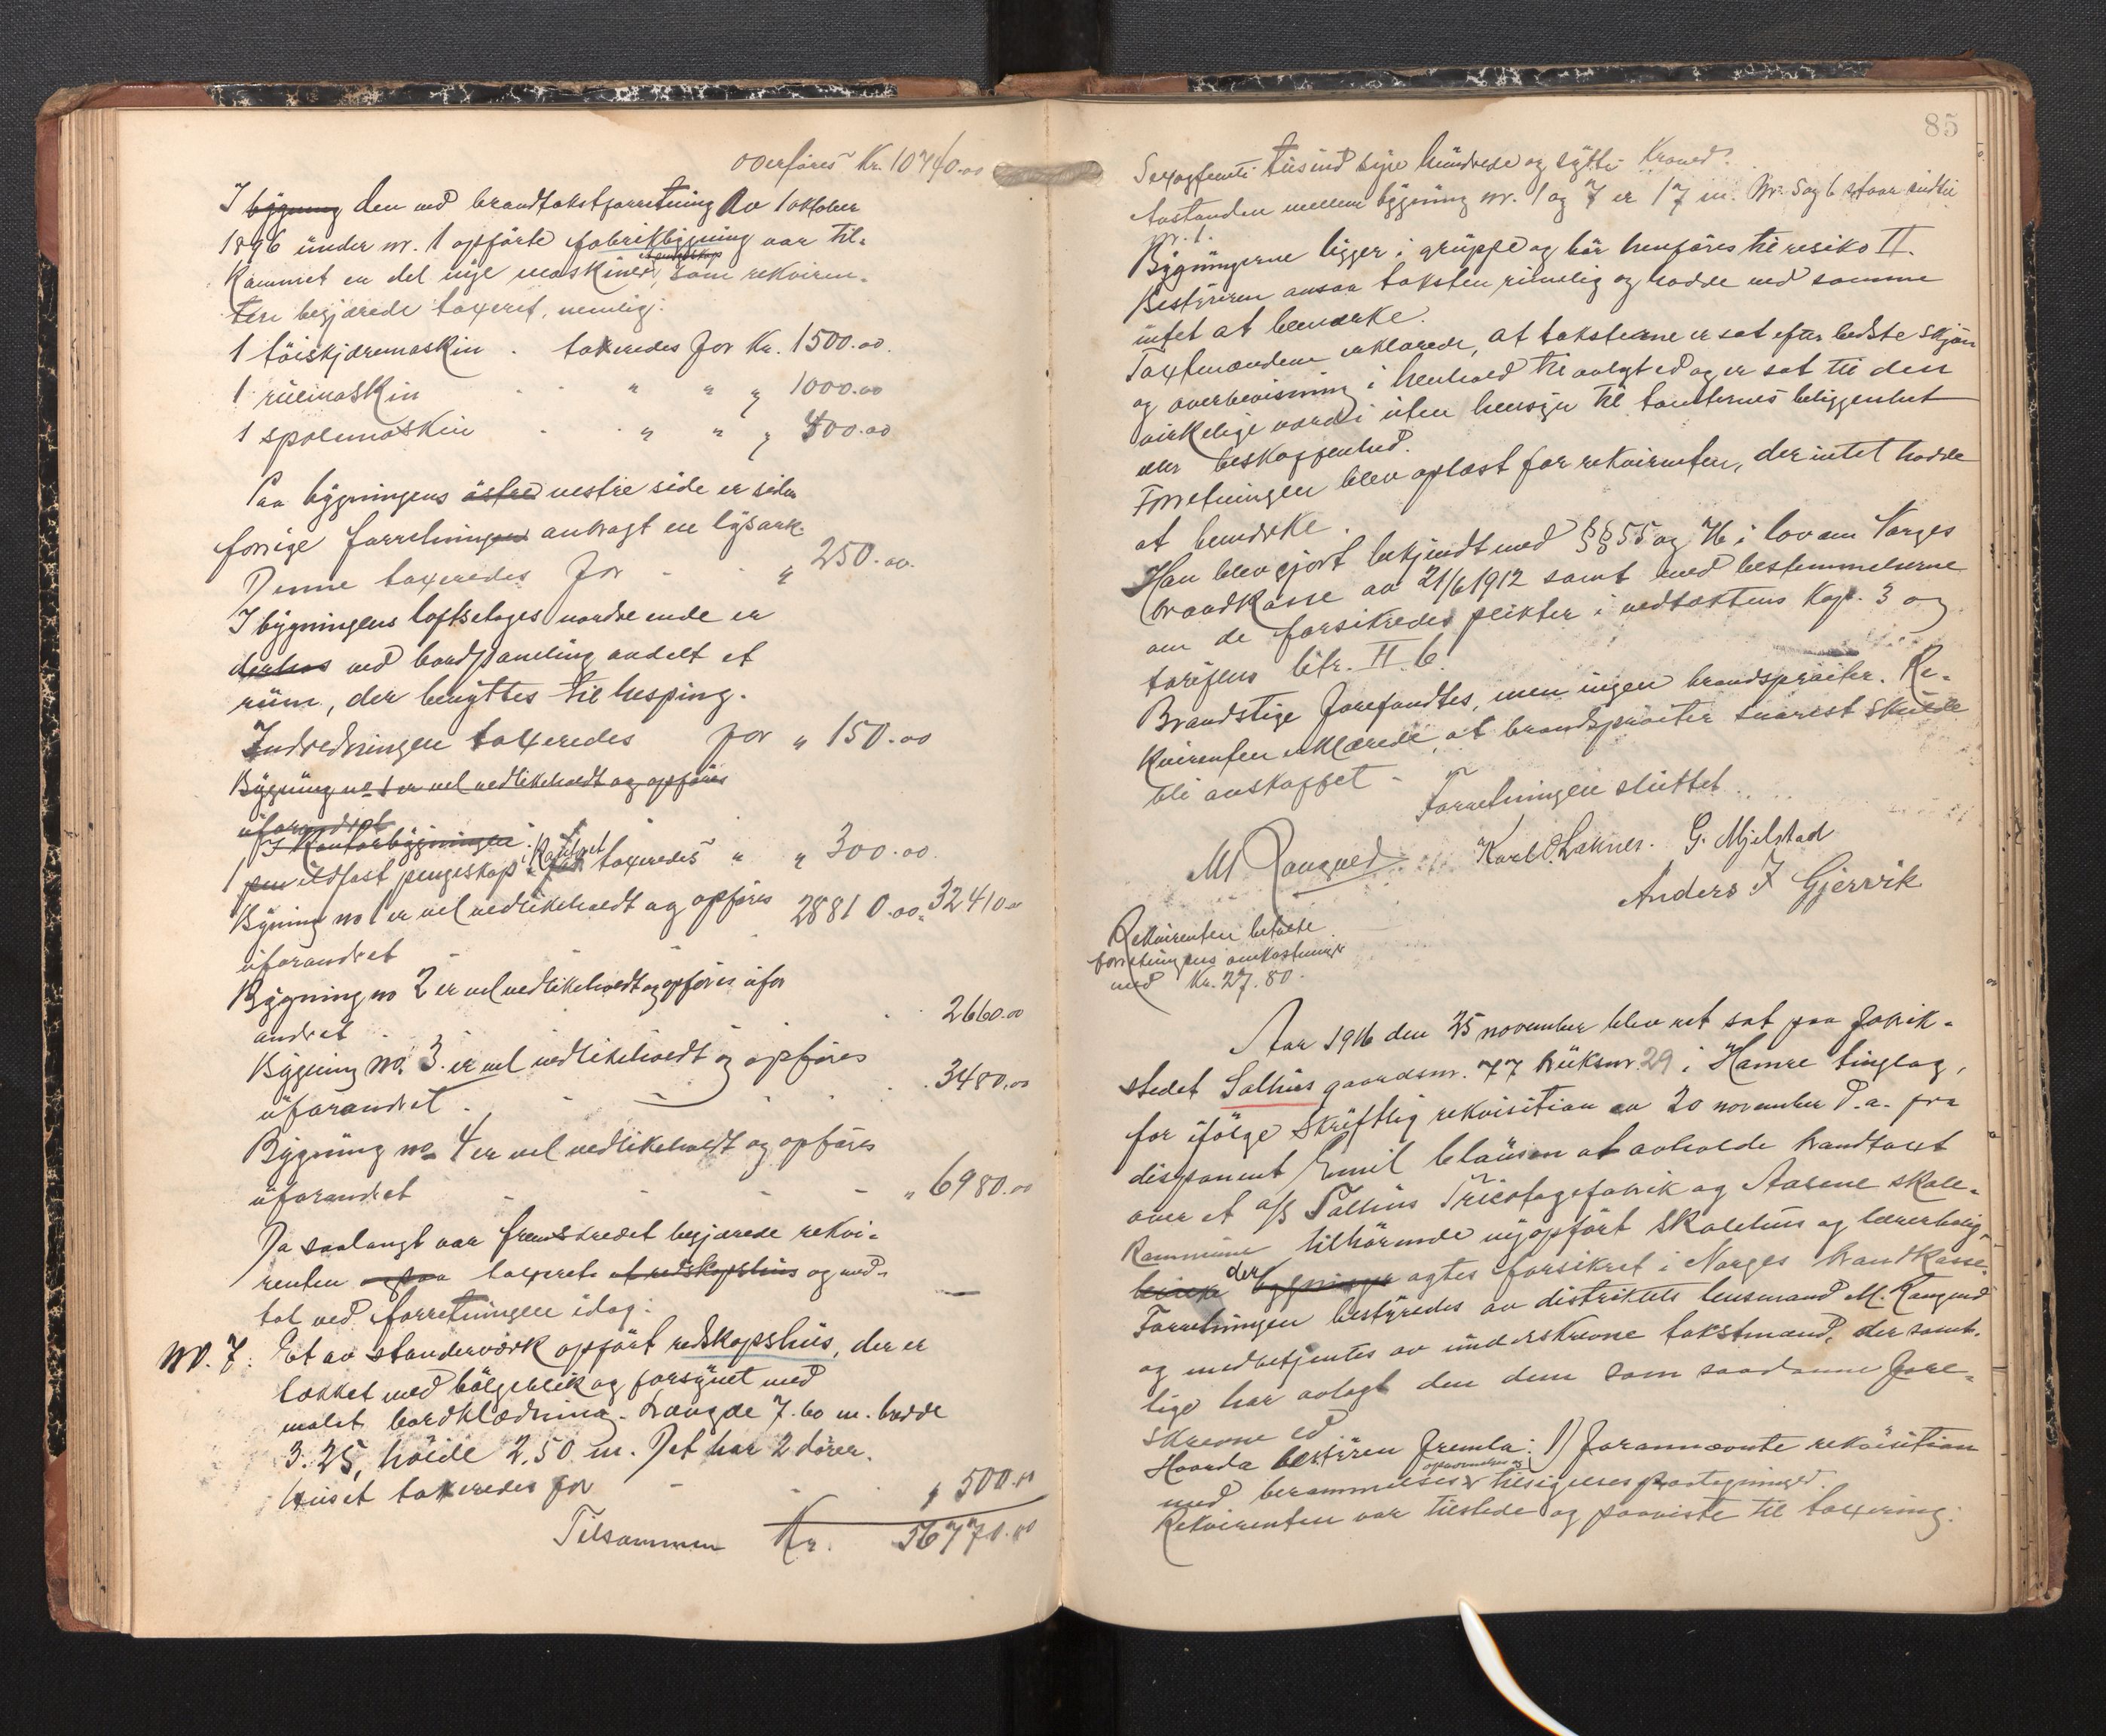 overføres Kr. 10740.00
I bygning den ved brandtakstforretning av 1 oktober
1896 under nr. 1 opførte fabrikbygning var til-
kommet en del nye maskiner, som rekviren-
ten begjærede taxeret, nemlig:
1 tøiskjæremaskin . takseredes for Kr. 1500.00.
1 ruemaskin . . " " " 1000.00
1 spolemaskin . . " " " 400.00
Paa bygningens østre vestre side er siden
forrige forretningen anbragt en lysark.
Denne taxeredes for - . " 250.00.
I bygningens loftsetages nordre ende er
derhos ved bordpaneling avdelt et
rum, der benyttes til hesping.
Indredningen taxeredes for " 150.00
Bygning no 1 er vel vedlikeholdt og opføres
uforandret
I Kontorbygningen
1 ildfast pengeskap i Kontoret taxeredes " " 300.00.
Bygning no 1 er vel vedlikeholdt og opføres 28810.00. 32410.00
uforandret -
Bygning no 2 er vel vedlikeholdt og opføres ufor
andret . . . 2660.00
Bygning no. 3. er vel vedlikeholdt og opføres
uforandret . - . . . 3480.00
Bygning no 4 er vel vedlikeholdt og opføres
uforandret - - - - " 6980.00
Da saalangt var fremskredet begjærede rekvi-
renten ogsaa taxeret et redskapshus og med-
tat ved forretningen idag:
No. 7: Et av standerværk opført redskapshus, der er
tækket med bølgeblik og forsynet med
malet bordklædning. Længde 7.60 m. bredde
3.25, høide 2.50 m. Det har 2 dører.
Huset takseredes for - . . " 500.00
Tilsammen Kr. 56770.00
85
Sexogfemti tusind syv hundrede og sytti Kroner.
Avstanden mellem bygning nr. 1 og 7 er 17 m. Nr. 5 og 6 staar indtil
nr. 1.
Bygningerne ligger i gruppe og bør henføres til risiko II.
Bestyreren ansaa taksten rimelig og hadde ved samme
intet at bemærke.
Taxtmændene erklærede, at taksterne er sat efter bedste skjøn
og overbevisning i henhold til avlagt ed og er sat til den
virkelige værdi uten hensyn til tomternes beliggenhet
eller beskaffenhed.
Forretningen blev oplæst for rekvirenten, der intet hadde
at bemerke.
Han blev gjort bekjendt med §§ 55 og 76 i lov om Norges
brandkasse av 21/6 1912 samt med bestemmelserne
om de forsikredes plikter i vedtæktens Kap. 3 og
tariffens litr. H. 6.
Brandstige forefandtes, men ingen brandsprøiter. Re-
kvirenten erklærede, at brandsprøiter snarest skulde
bli anskaffet -
Forretningen sluttet.
M Rangved Karl O. Løkner. G. Mjelstad
Anders J Gjervik
Rekvirenten betalte
forretningens omkostninger
med Kr. 27.80.
Aar 1916 den 25 november blev ret sat paa fabrik-
stedet Salhus gaardsnr. 77 bruksnr. 29 i Hamre tinglag,
for ifølge skriftlig rekvisition av 20 november d.a. fra
disponent Emil Clausen at avholde brandtaxt
over et a/s Salhus Tricotagefabrik og Aasene skole-
Kommune tilhørende nyopført skolehus og lærerbolig
der bygninger agtes forsikret i Norges brandkasse.
Forretningen bestyredes av distriktets lensmand M. Rangved
og medbetjentes av underskrevne takstmænd, der samt-
lige har avlagt den dem som saadanne fore-
skrevne ed
Hvorda bestyren fremla: 1) forannævnte rekvisition
med berammelses, opnævnelses og tilsigelsespaategninger.
Rekvirenten var tilstede og paaviste til taxering: